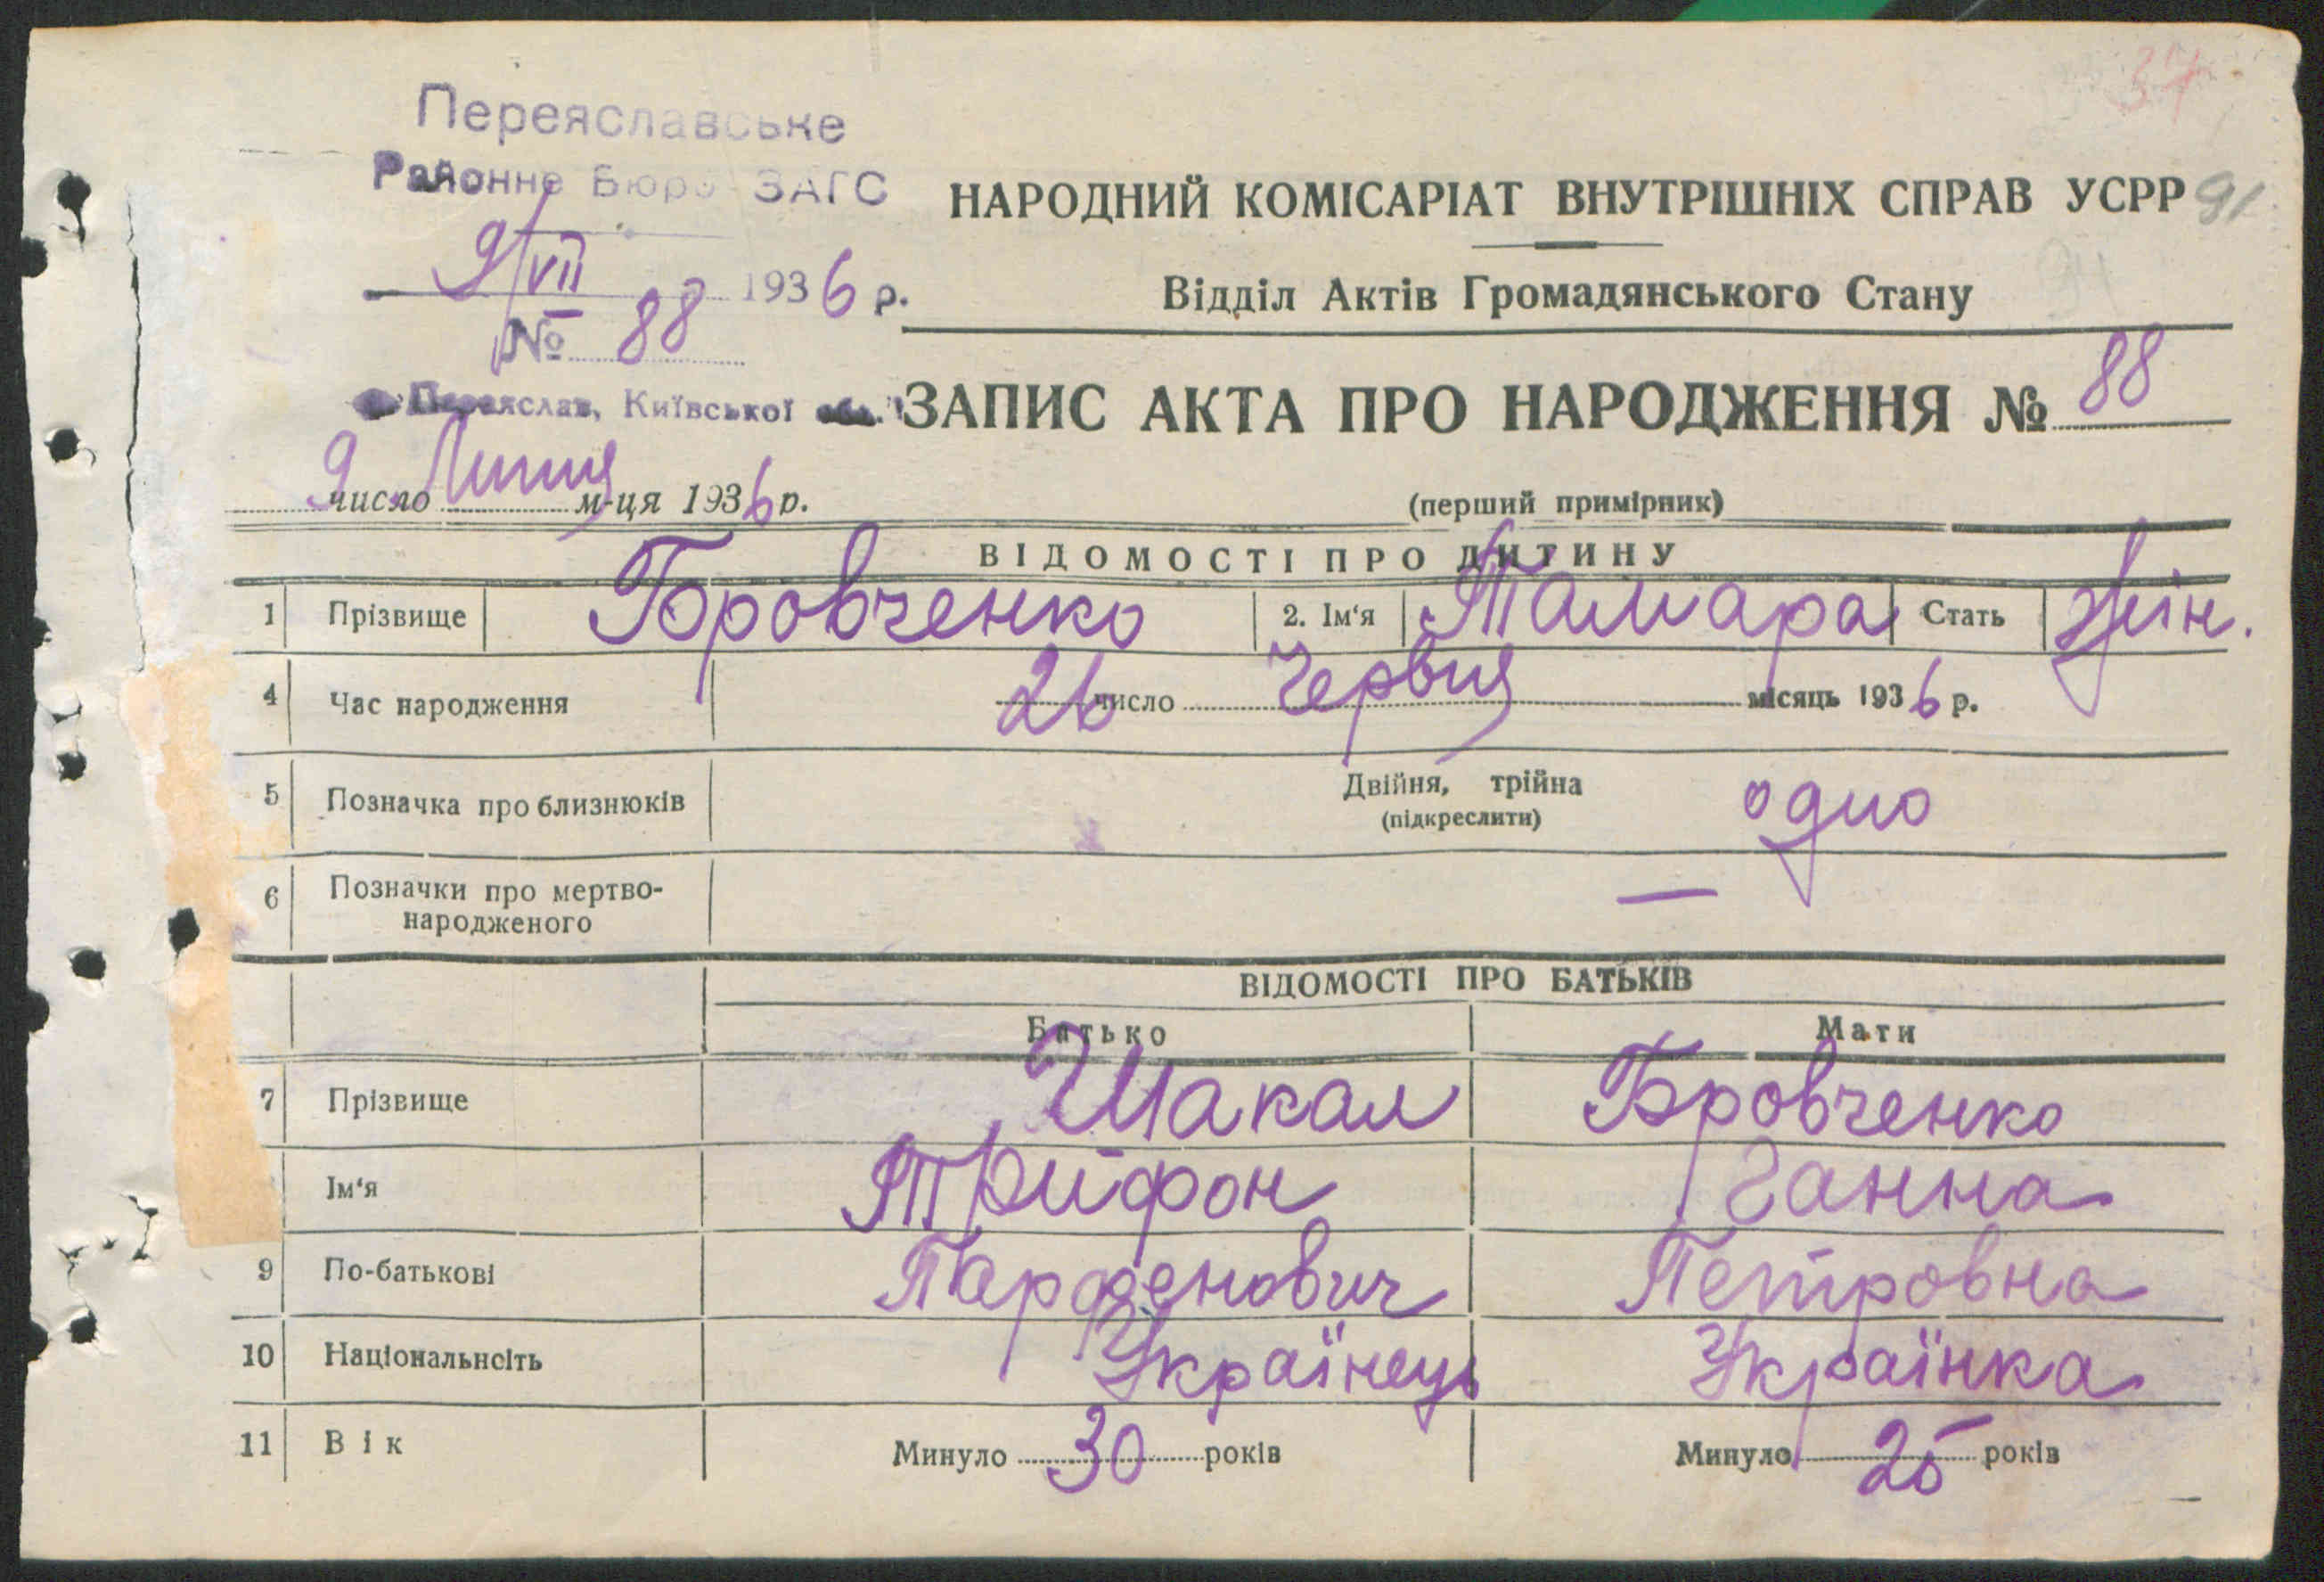 37
Переяславське
Районне Бюро ЗАГС
НАРОДНИЙ КОМІСАРІАТ ВНУТРІШНІХ СПРАВ УСРР 91
9/VII 1936 р.
94
Відділ Актів Громадянського Стану
№ 88
Переяслав, Київської обл.
ЗАПИС АКТА ПРО НАРОДЖЕННЯ № 88
9 число Липня м-ця 1936 р.
(перший примірник)
ВІДОМОСТІ ПРО ДИТИНУ
1 Прізвище Бровченко 2. Ім‘я Тамара Стать Жін.
4 Час народження 26 число Червня місяць 1936 р.
5 Позначка про близнюків Двійня, трійна одно
(підкреслити)
6 Позначки про мертво-
народженого —
ВІДОМОСТІ ПРО БАТЬКІВ
Батько Мати
7 Прізвище Шакал Бровченко
Ім‘я Трифон Ганна
9 По-батькові Парфенович Петровна
10 Національнсіть Українець Українка
11 Вік Минуло 30 років Минуло 25 років